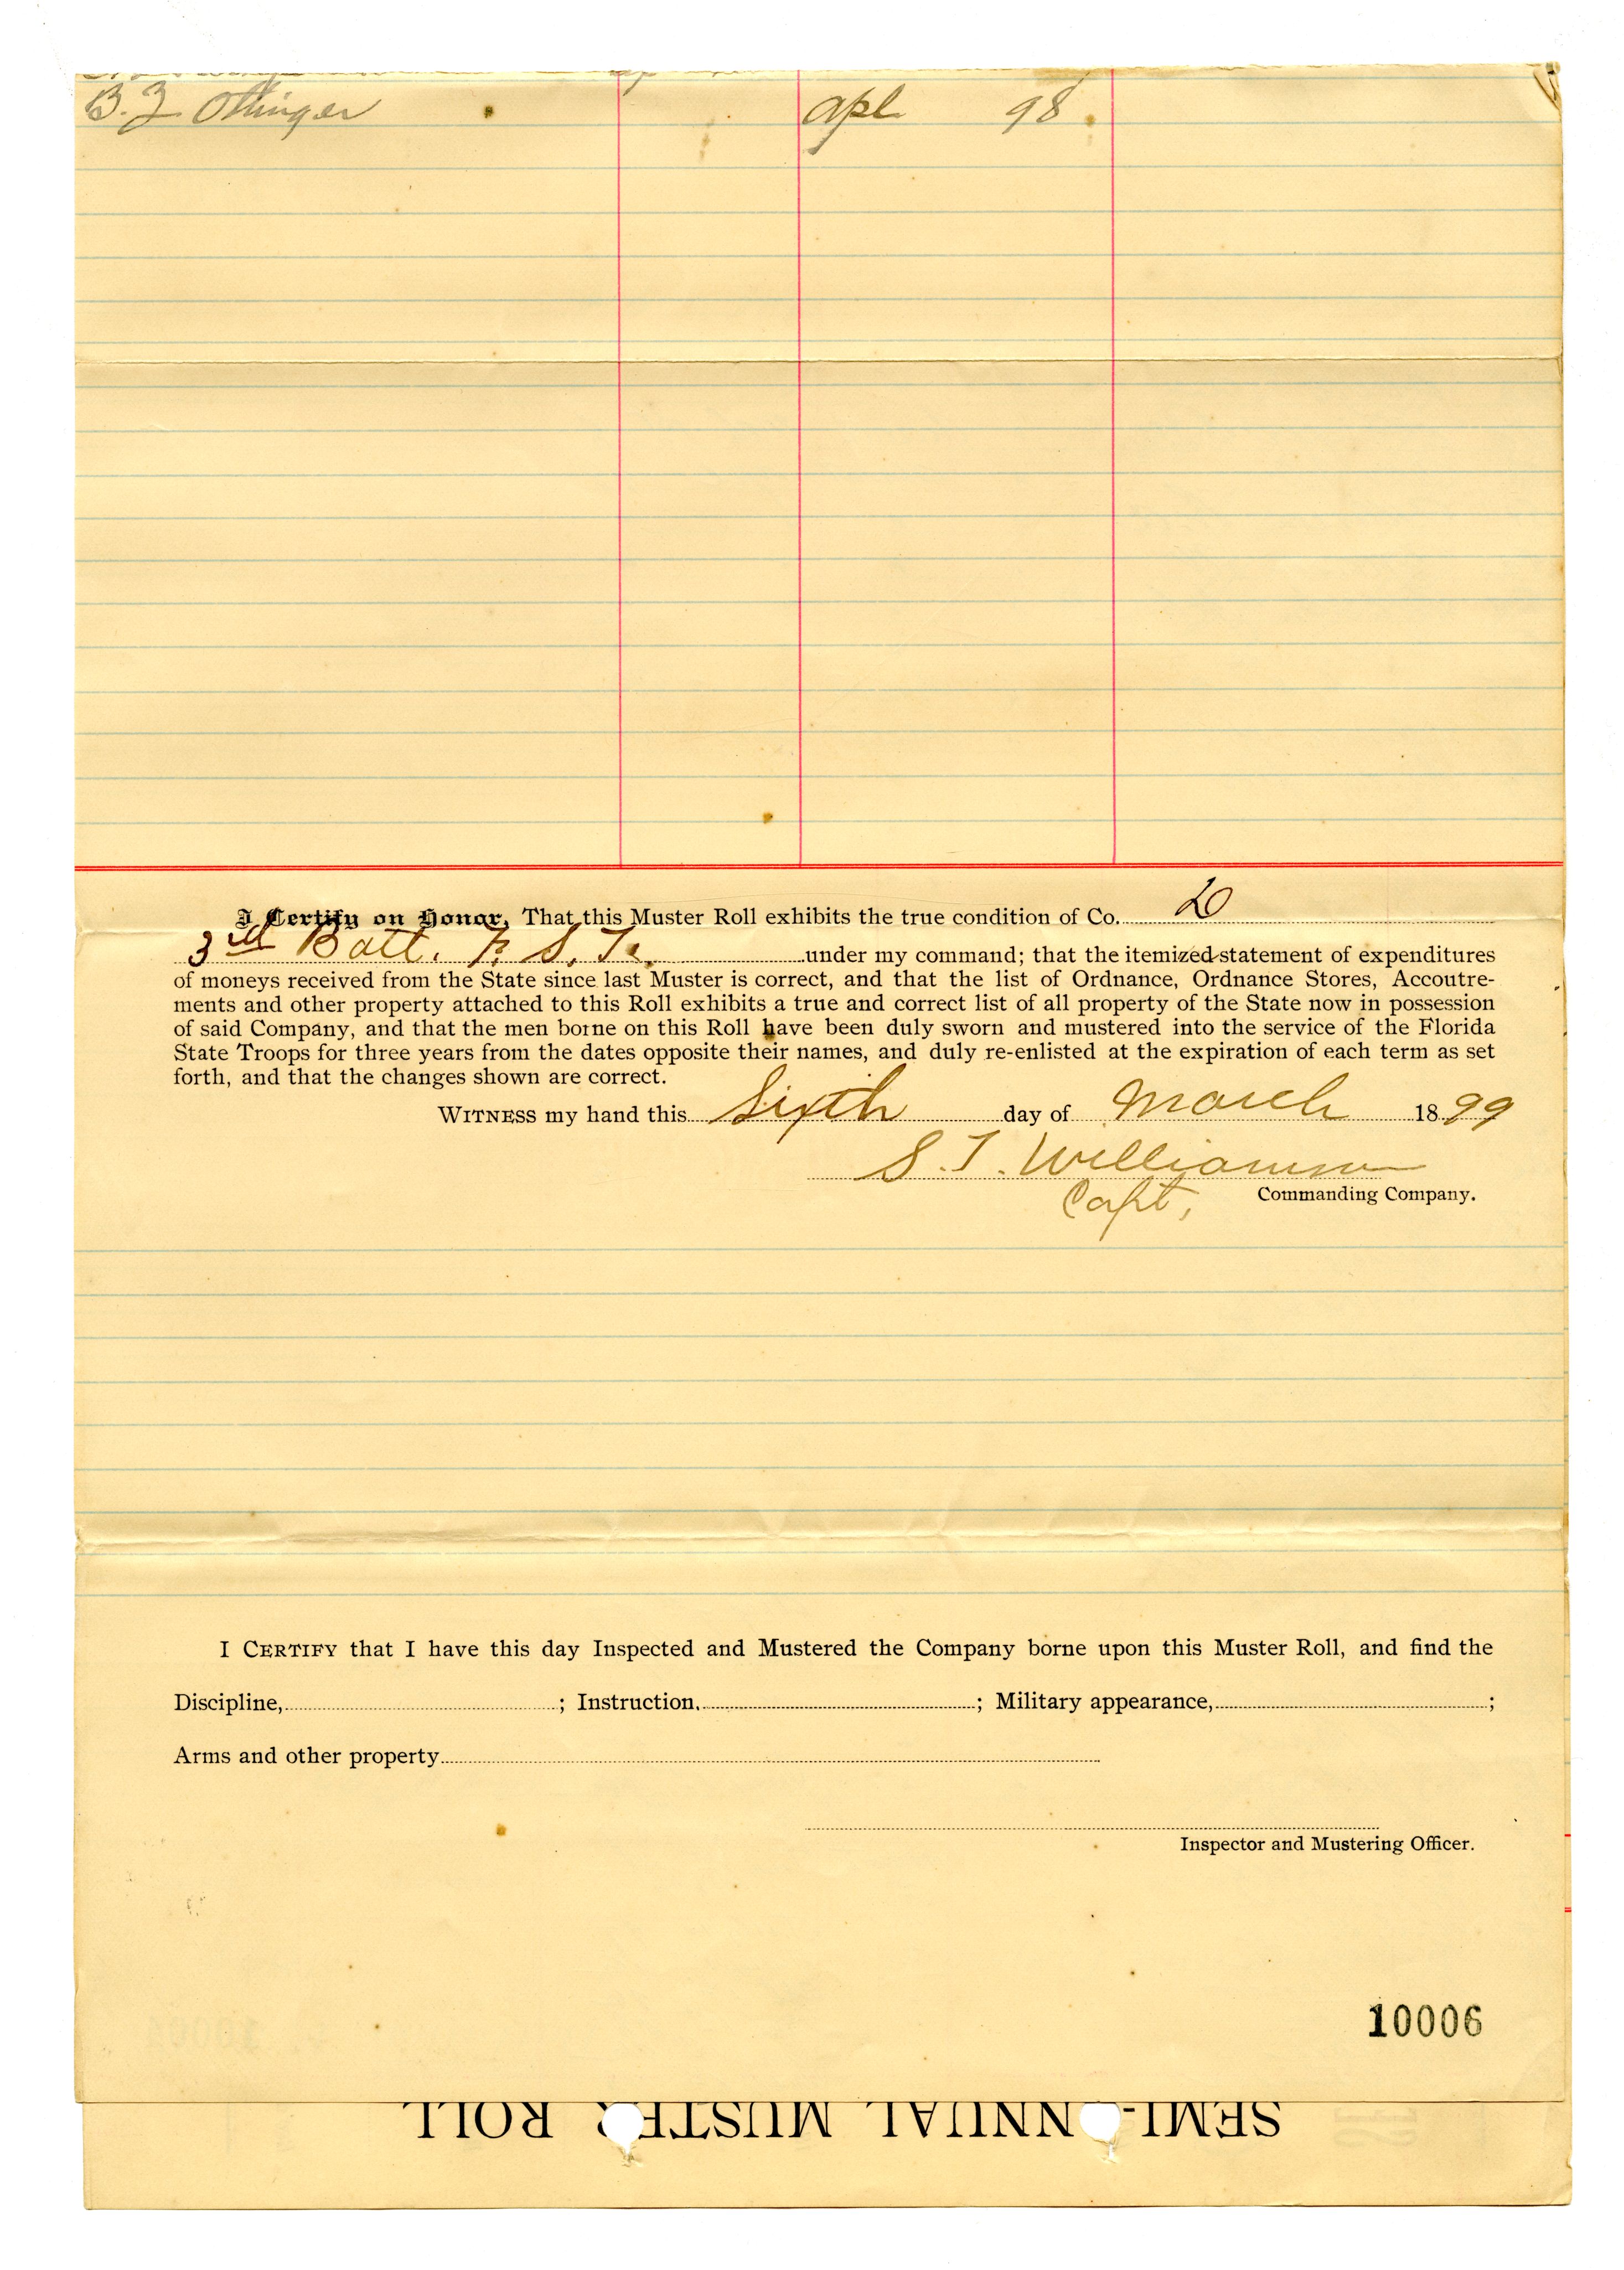 B. Z. Ottinger apl 98
I Certify on Honor, That this Muster Roll exhibits the true condition of Co. D
3rd Batt. F. S. T. under my command; that the itemized statement of expenditures
of moneys received from the State since last Muster is correct, and that the list of Ordnance, Ordnance Stores, Accoutre-
ments and other property attached to this Roll exhibits a true and correct list of all property of the State now in possession
of said Company, and that the men borne on this Roll have been duly sworn and mustered into the service of the Florida
State Troops for three years from the dates opposite their names, and duly re-enlisted at the expiration of each term as set
forth, and that the changes shown are correct.
WITNESS my hand this Sixth day of March 1899
S. T. Williamson
Capt, Commanding Company.
I CERTIFY that I have this day Inspected and Mustered the Company borne upon this Muster Roll, and find the
Discipline, ; Instruction, ; Military appearance, ;
Arms and other property
Inspector and Mustering Officer.
10006
SEMI-ANNUAL MUSTER ROLL